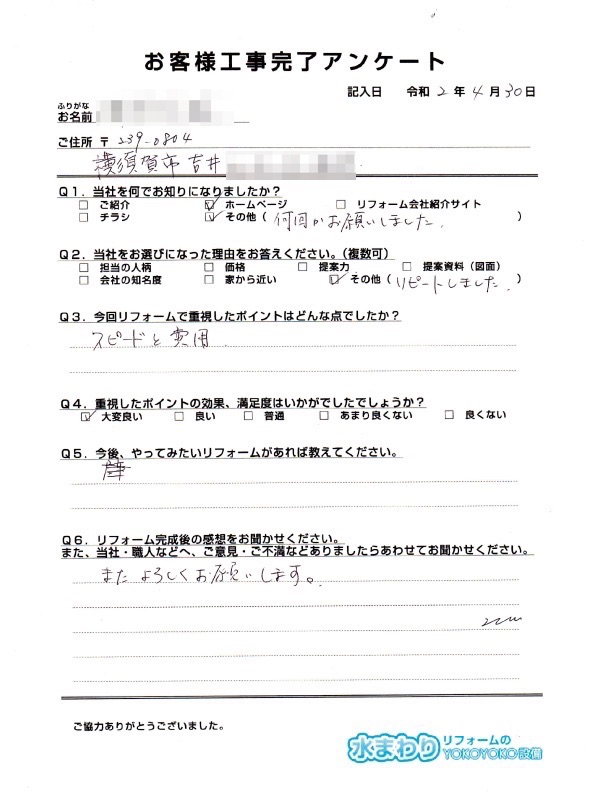 お客様工事完了アンケート
記入日 令和 2 年 4 月 30 日
ふりがな
お名前
ご住所 〒 239-0804
横須賀市吉井
Q1. 当社を何でお知りになりましたか?
□ ご紹介 ☑ ホームページ □ リフォーム会社紹介サイト
□ チラシ ☑ その他 ( 何回かお願いしました. )
Q2. 当社をお選びになった理由をお答えください。(複数可)
□ 担当の人柄 □ 価格 □ 提案力 □ 提案資料(図面)
□ 会社の知名度 □ 家から近い ☑ その他 ( リピートしました. )
Q3. 今回リフォームで重視したポイントはどんな点でしたか?
スピードと費用.
Q4. 重視したポイントの効果、満足度はいかがでしたでしょうか?
☑ 大変良い □ 良い □ 普通 □ あまり良くない □ 良くない
Q5. 今後、やってみたいリフォームがあれば教えてください。
Q6. リフォーム完成後の感想をお聞かせください。
また、当社・職人などへ、ご意見・ご不満などありましたらあわせてお聞かせください。
またよろしくお願いします。
ご協力ありがとうございました。
水まわり リフォームの YOKOYOKO設備